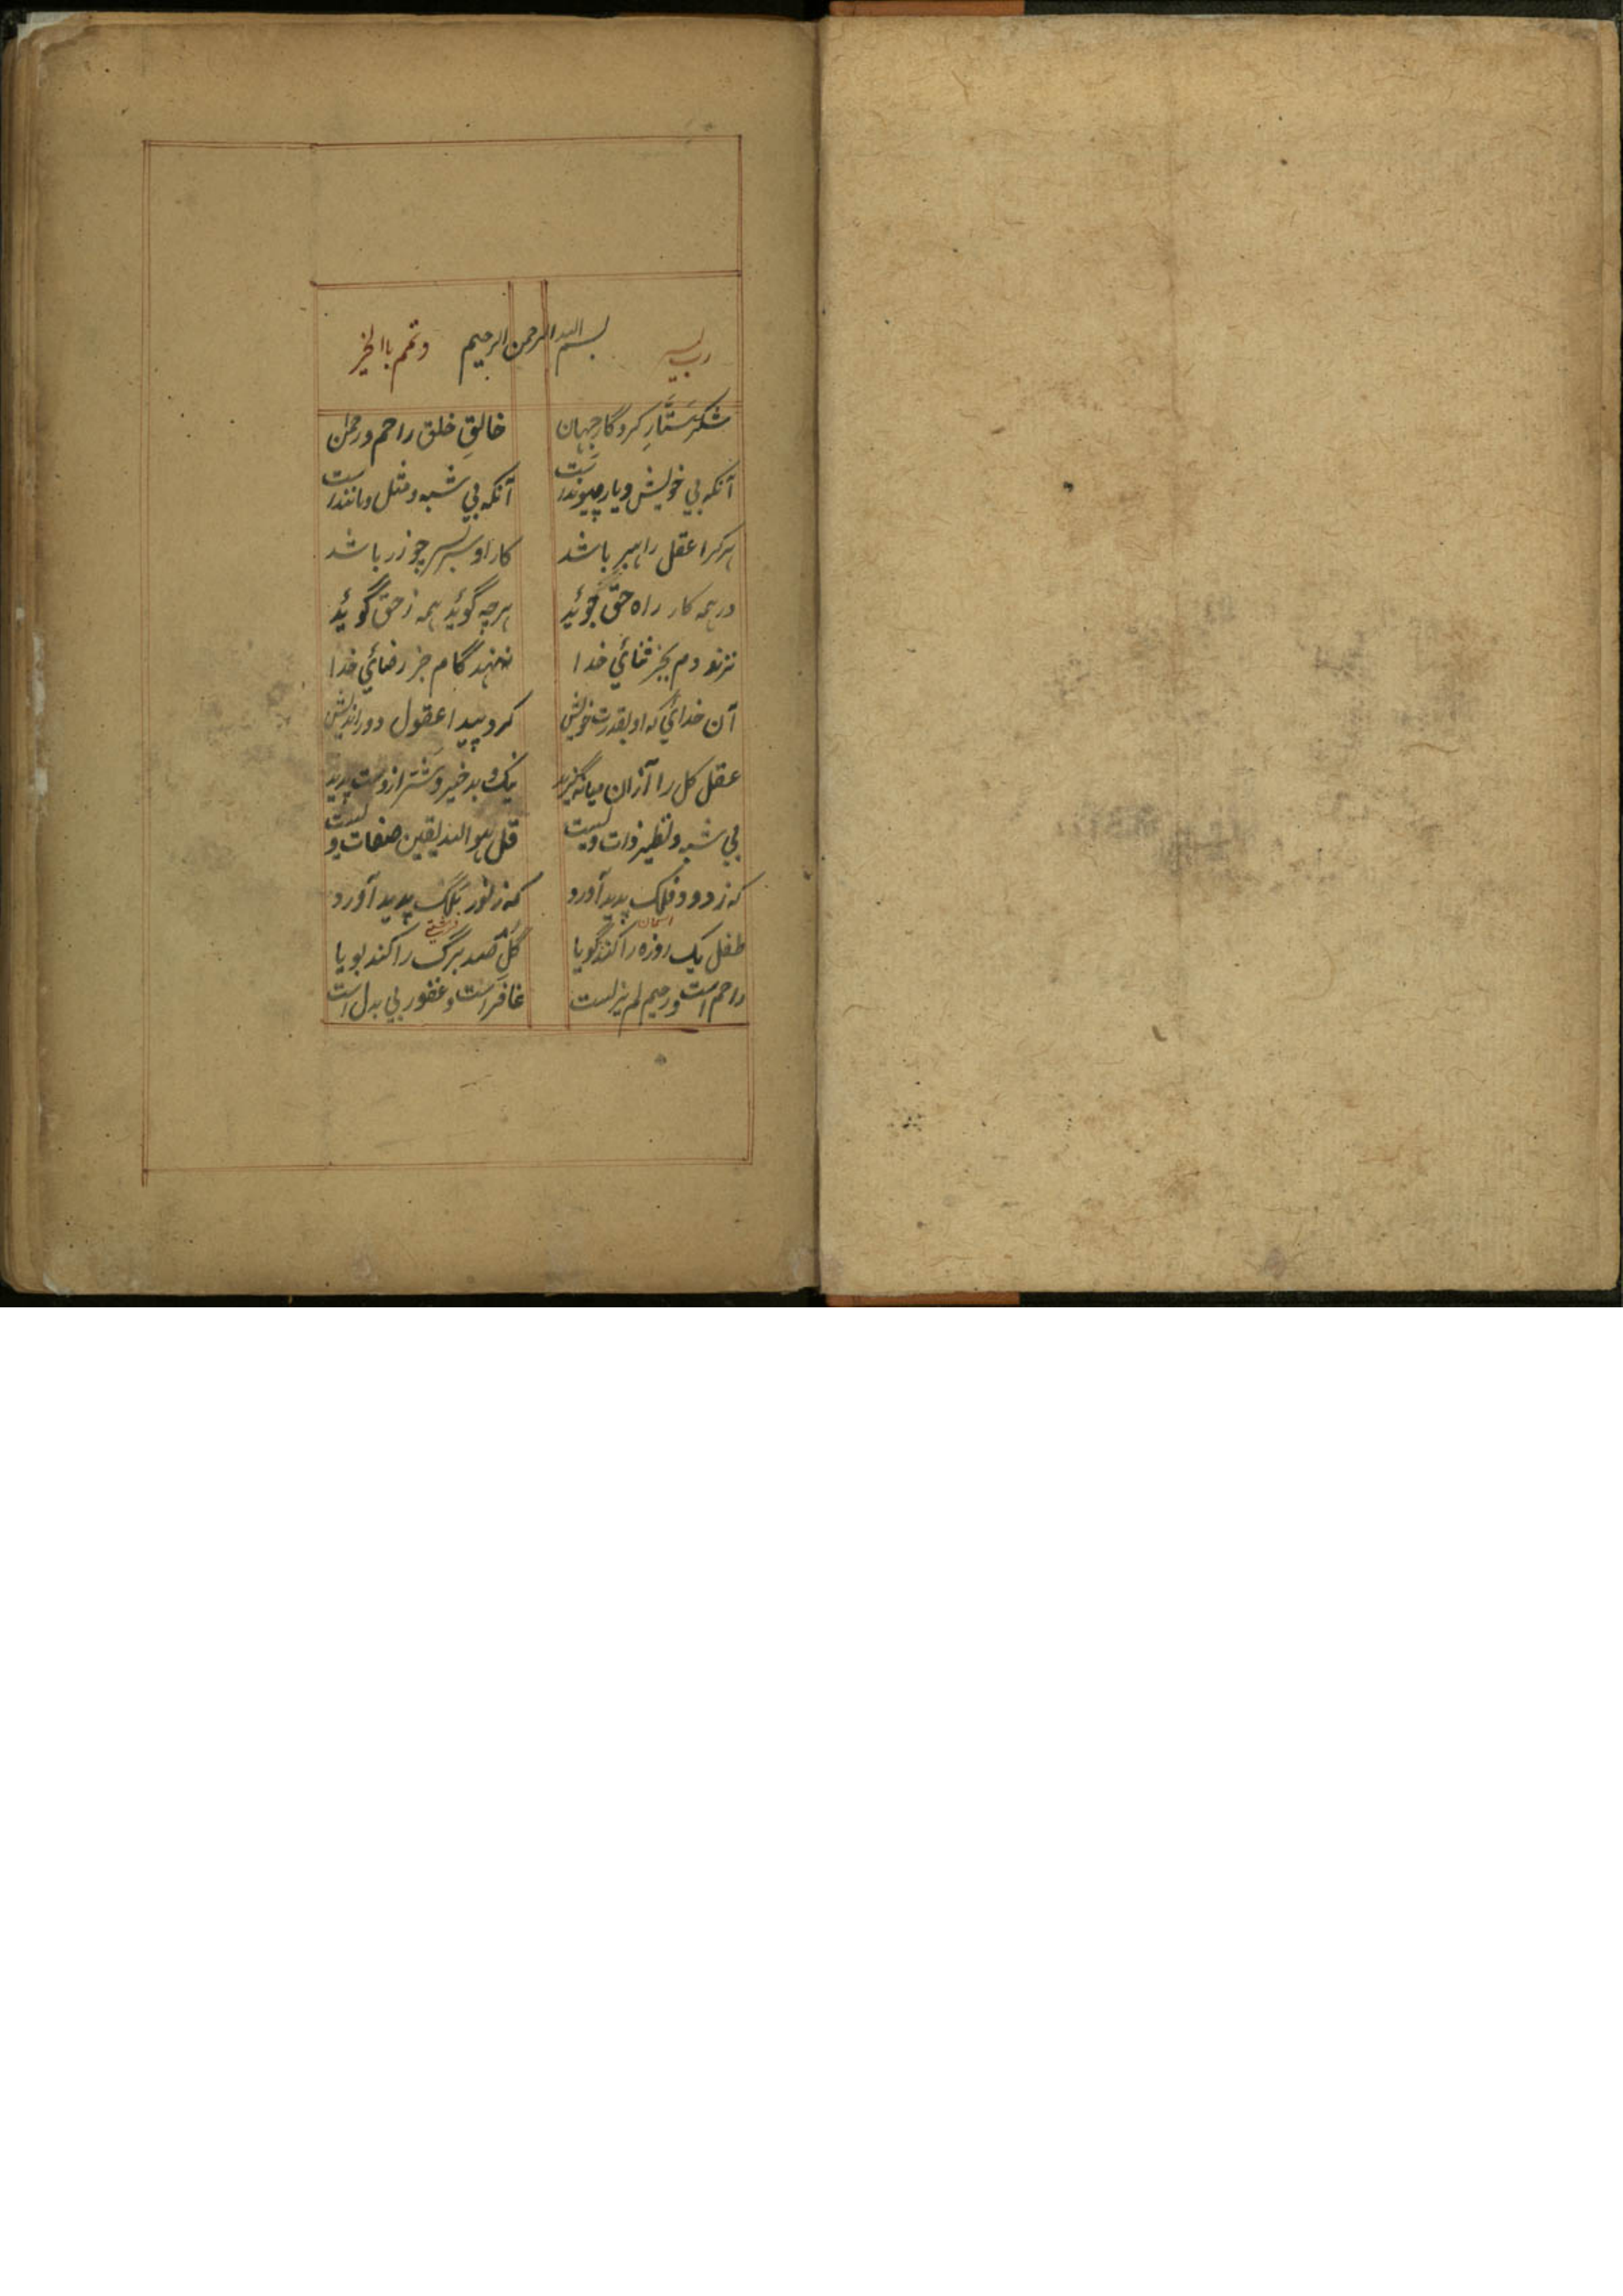 رب یسر بسم الله الرحمن الرحیم وتمم باالخیر
شکر ستَّارِ کردگار جهان خالقِ خلق راحم و رحمن
آنکه بی خویش و یار و پیوندست آنکه بی شبه و مثل و مانندست
هر کرا عقل راهبر باشد کار او سر بسر چو زر باشد
در همه کار راه حقّ جوئید هرچه گوئید همه ز حق گوئید
نزند دم بجز ثنائی خدا ننهد گام جز رضائی خدا
آن خدائی که او بقدرت خویش کرد پیدا عقول دوراندیش
عقل کل را از آن میانه گزید نیک و بد خیر و شر ازوست پدید
بی شبه و نظیر ذات ویست قل هو الله یقین صفات ویست
که ز دود فلک پدید آورد که ز نور ملک پدید آورد
اسمان فرشته
طفل یک روزه را کند گویا گل صد برگ را کند بویا
راحم است و رحیم لم یزلست غافر است و غفور بی بدل است